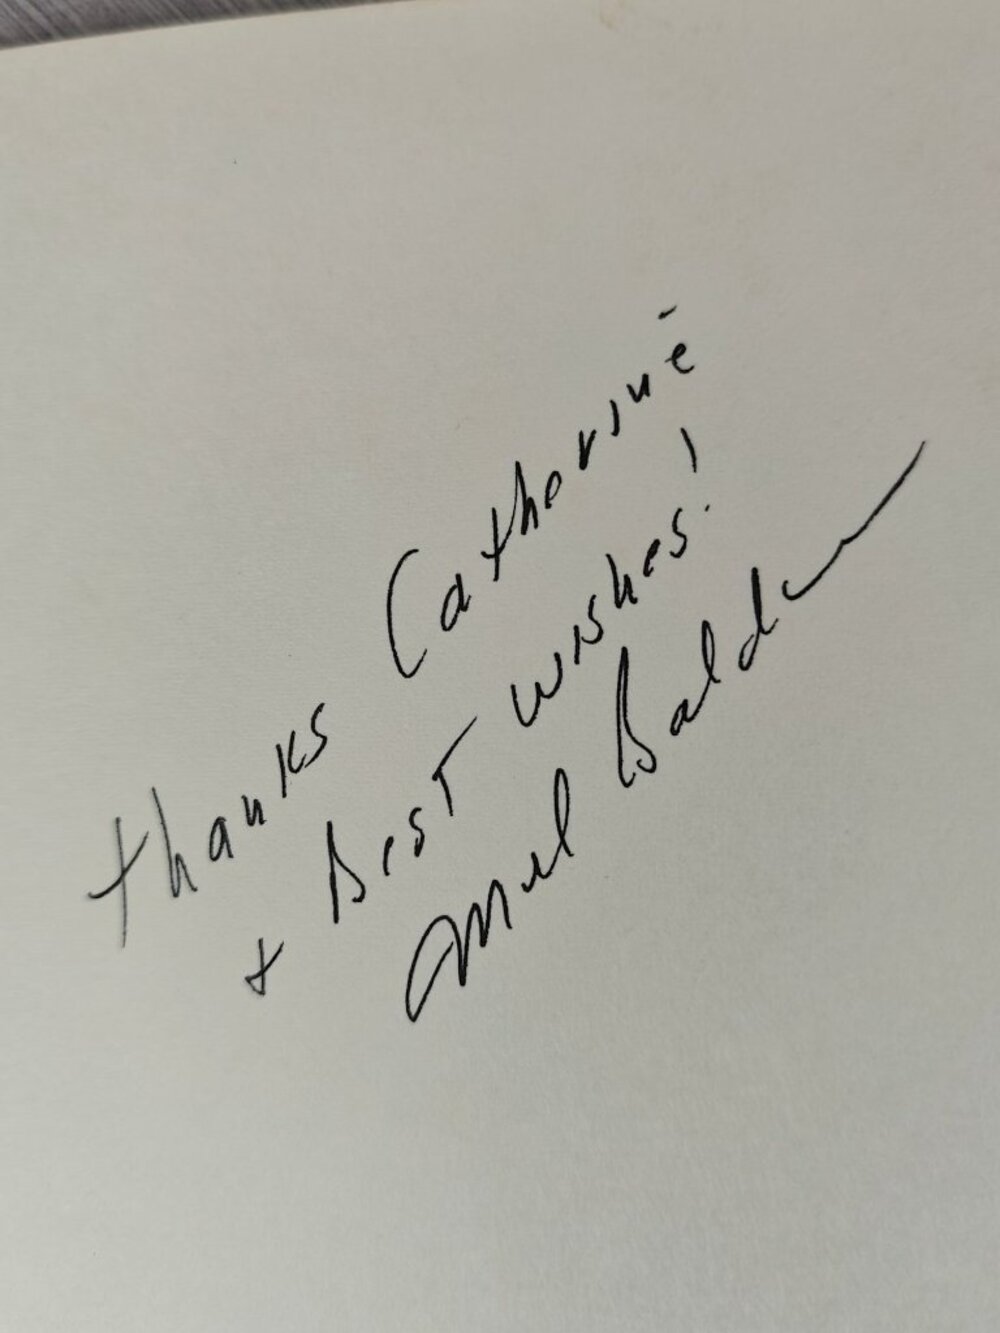 thanks Catherine
+ Best wishes!
Mel